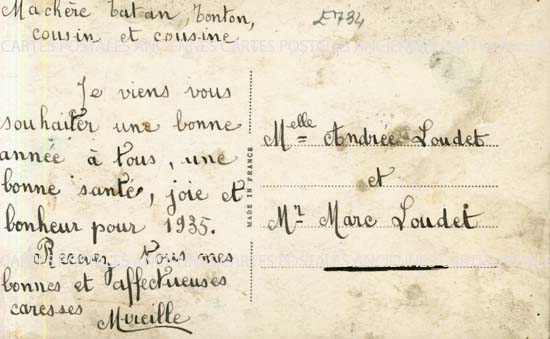 Ma chère tatan, tonton,
cousin et cousine.
E734
Je viens vous
souhaiter une bonne
année à tous, une
bonne santé, joie et
bonheur pour 1935.
Recevez tous mes
bonnes et affectueuses
caresses
Mireille
MADE IN FRANCE
Melle Andrée Loudet
et
Mr Marc Loudet
CARTES POSTALES ANCIENNES CARTES POSTALES ANCIENNES